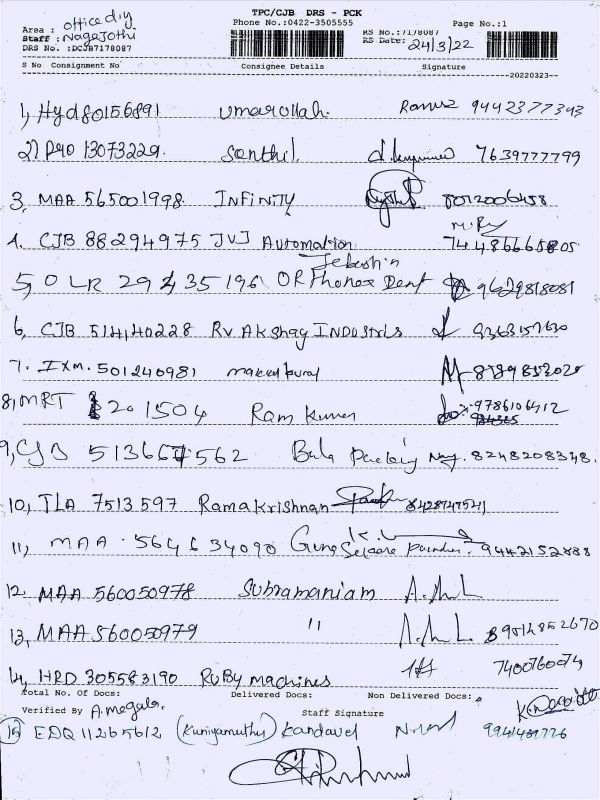 TPC/CJB DRS - PCK
Phone No.:0422-3505555 Page No.:1
Area : office diy
Staff : Nagajothi
RS No.:7178087
DRS No. :DCJB7178087 RS Date: 24/3/22
S No Consignment No Consignee Details Signature
20220323--
1, Hyd 80156891 umarullah. 9442377343
2) P40 13073229. Santhil. 7639777799
3, MAA 565001998. INFINITY 8012006458
4. CJB 88294975 JVJ Automation
Jebashin
5, OLR 29435196 ORThonex Dent 9629818081
6, CJB 514140228 Rv Akshay INDUSTRLS 9363157630
7. IXM. 501240981
8, MRT 201504 Ram Kumar 9786106412
9, CJB 513667562 Bala Packaing 8248208348.
10, TLA 7513597 Ramakrishnan 8428747541
11, MAA . 564634090 9442152888
12. MAA 560050978 Subramaniam
13. MAA 560050979 "
14, HRD 305583190 RUBy machines 7400760074
Total No. Of Docs: Delivered Docs: Non Delivered Docs:
Verified By A.megala. Staff Signature
15 EDQ 11265612 (Kuniyamuthur) Kandavel